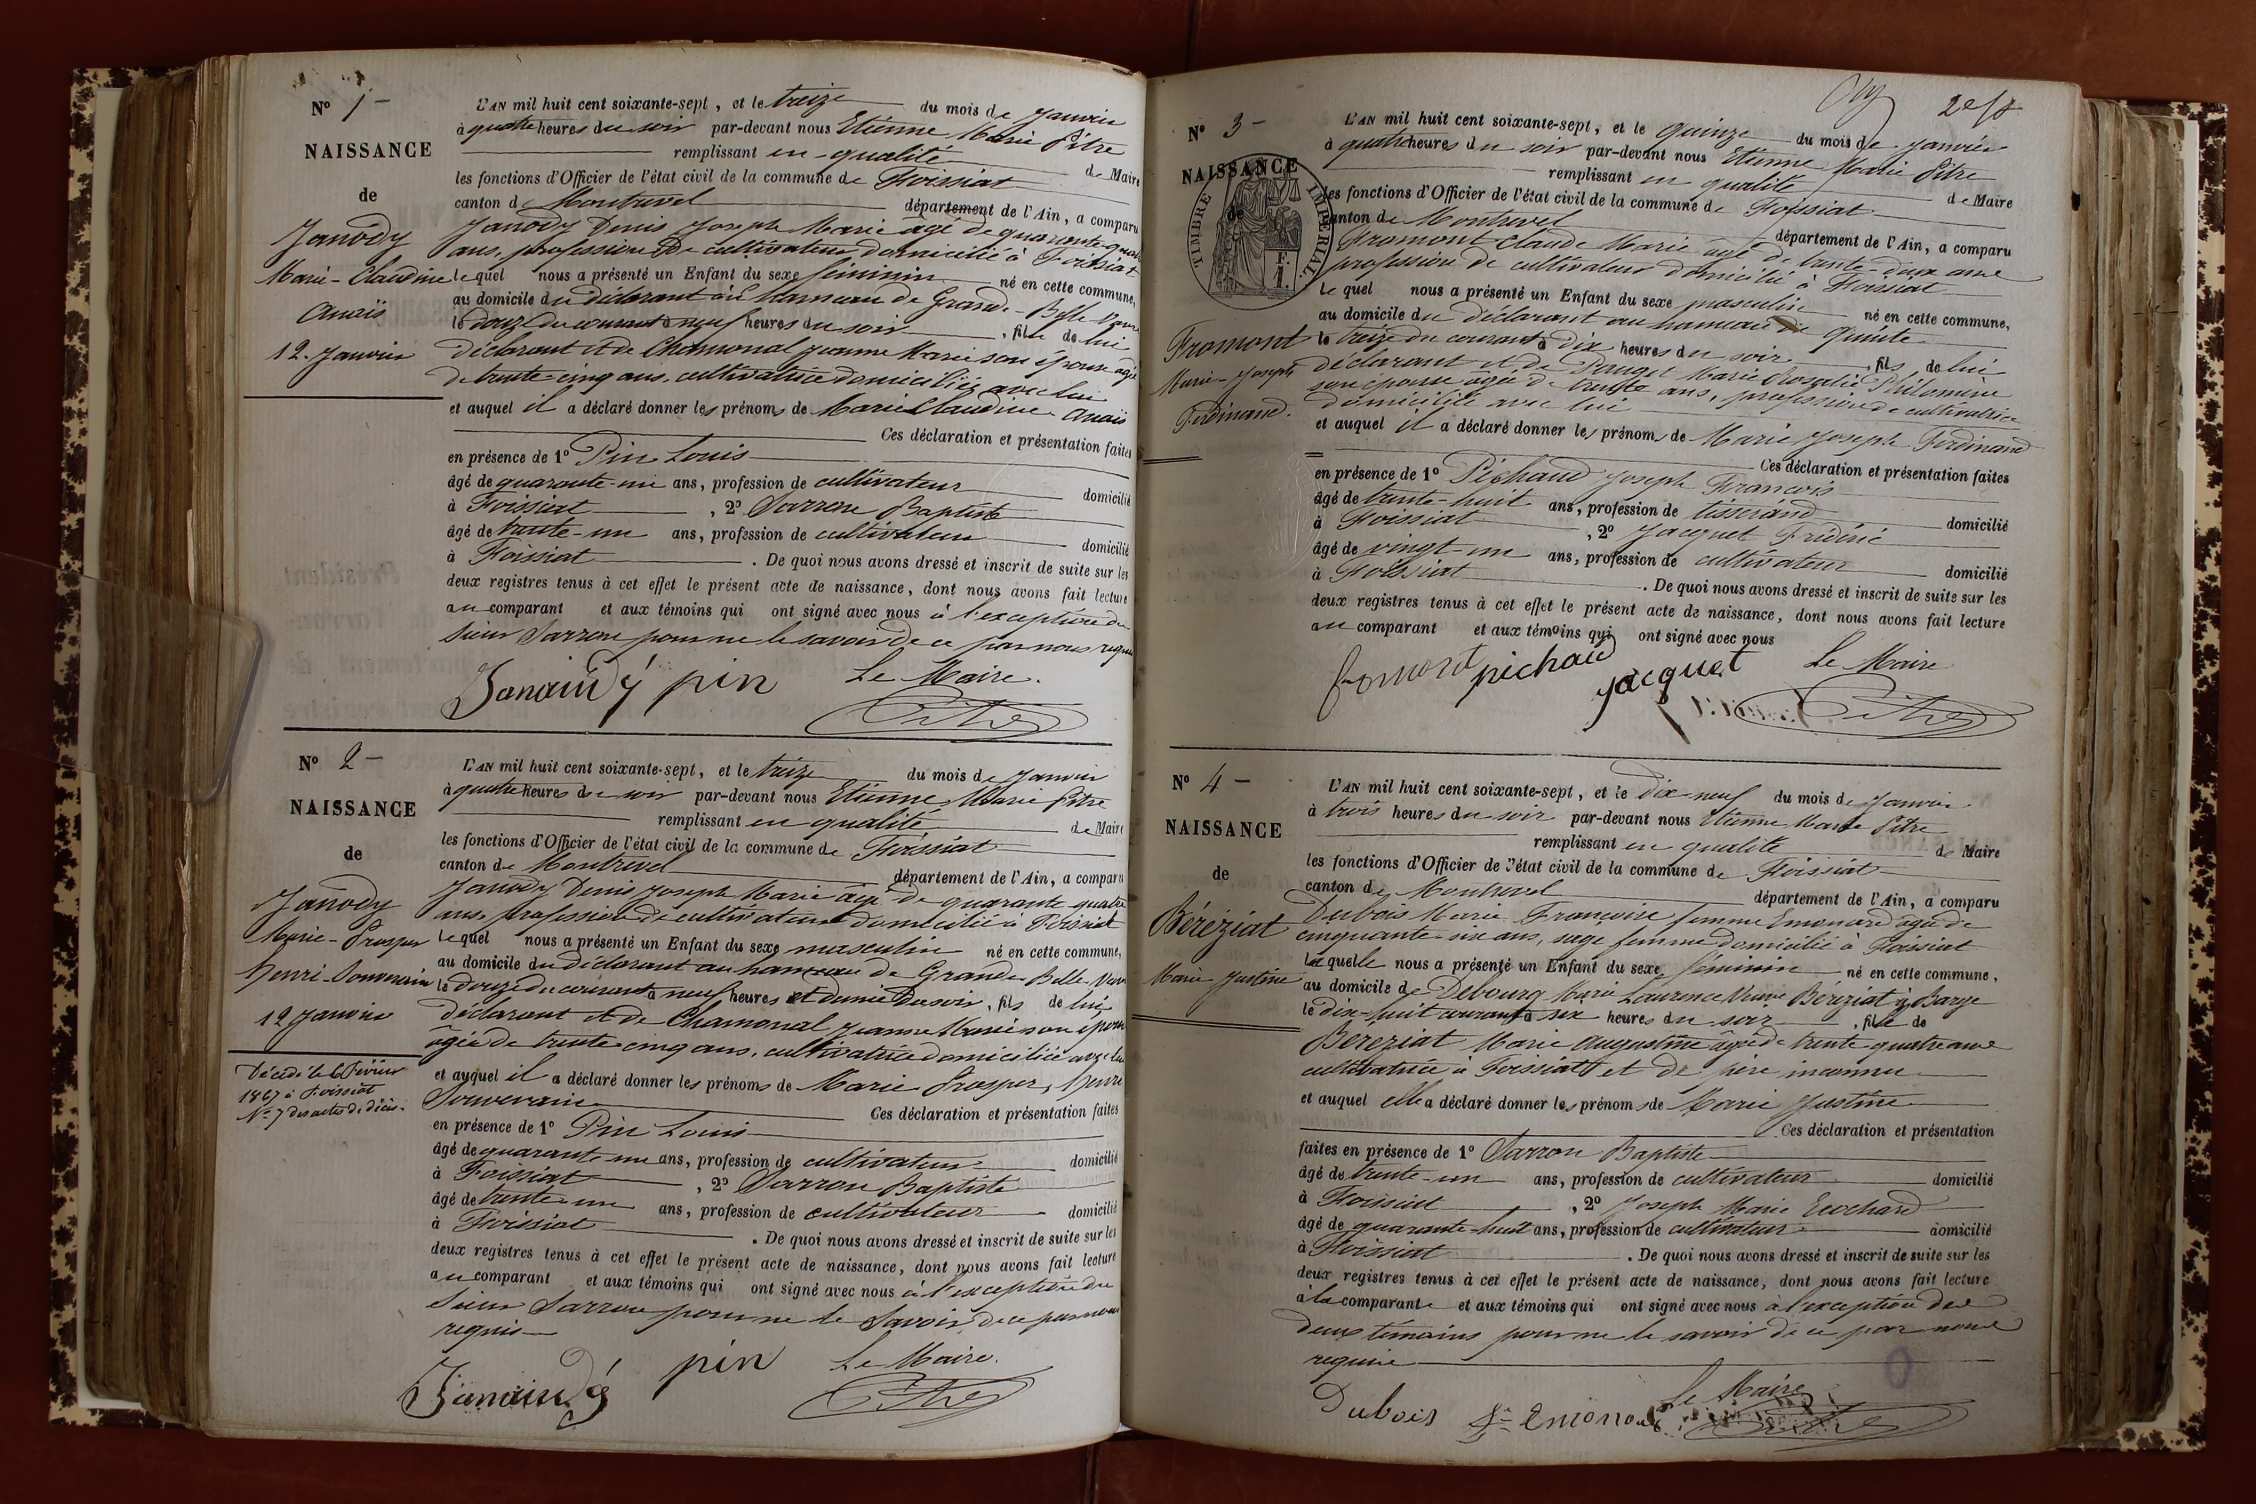 N° 1 —
NAISSANCE
de
Janody
Marie-Claudine
Anaïs
12. Janvier
L'AN mil huit cent soixante-sept, et le treize du mois de Janvier
à quatre heures du soir par-devant nous Etienne Marie Pitre
remplissant en qualité de Maire
les fonctions d'Officier de l'état civil de la commune de Foissiat
canton de Montrevel département de l'Ain, a comparu
Janody Denis Joseph Marie âgé de quarante-quatre
ans, profession de cultivateur domicilié à Foissiat
lequel nous a présenté un Enfant du sexe féminin né en cette commune,
au domicile du déclarant au hameau de Grande-Belle
le douze du courant à neuf heures du soir, fille de lui
déclarant et de Chamonal Jeanne Marie son épouse agée
de trente-cinq ans, cultivatrice domiciliée avec lui
et auquel il a déclaré donner les prénoms de Marie Claudine Anaïs
Ces déclaration et présentation faites
en présence de 1° Pin Louis
âgé de quarante-un ans, profession de cultivateur domicilié
à Foissiat, 2° Sarron Baptiste
âgé de trente-un ans, profession de cultivateur domicilié
à Foissiat. De quoi nous avons dressé et inscrit de suite sur les
deux registres tenus à cet effet le présent acte de naissance, dont nous avons fait lecture
au comparant et aux témoins qui ont signé avec nous à l'exception du
sieur Sarron pour ne le savoir de ce par nous requis
Janaudy pin Le Maire.
Pitre
N° 2 —
NAISSANCE
de
Janody
Marie-Prosper
Henri-Souverain
12 Janvier
Décédé le 6 Février
1867 à Foissiat
N° 7 des actes de décès.
L'AN mil huit cent soixante-sept, et le treize du mois de Janvier
à quatre heures du soir par-devant nous Etienne Marie Pitre
remplissant en qualité de Maire
les fonctions d'Officier de l'état civil de la commune de Foissiat
canton de Montrevel département de l'Ain, a comparu
Janody Denis Joseph Marie âgé de quarante quatre
ans, profession de cultivateur domicilié à Foissiat
lequel nous a présenté un Enfant du sexe masculin né en cette commune,
au domicile du déclarant au hameau de Grande Belle
le douze du courant à neuf heures et demie du soir, fils de lui
déclarant et de Chamonal Jeanne Marie son épouse
âgée de trente cinq ans, cultivatrice domiciliée avec lui
et auquel il a déclaré donner les prénoms de Marie Prosper, Henri
Souverain
Ces déclaration et présentation faites
en présence de 1° Pin Louis
âgé de quarante un ans, profession de cultivateur domicilié
à Foissiat, 2° Sarron Baptiste
âgé de trente-un ans, profession de cultivateur domicilié
à Foissiat. De quoi nous avons dressé et inscrit de suite sur les
deux registres tenus à cet effet le présent acte de naissance, dont nous avons fait lecture
au comparant et aux témoins qui ont signé avec nous à l'exception du
Sieur Sarron pour ne le savoir de ce par nous
requis
Janaudy pin Le Maire.
Pitre
N° 3 —
NAISSANCE
de
TIMBRE IMPÉRIAL
Fromont
Marie-Joseph
Ferdinand.
L'AN mil huit cent soixante-sept, et le quinze du mois de Janvier
à quatre heures du soir par-devant nous Etienne Marie Pitre
remplissant en qualité de Maire
les fonctions d'Officier de l'état civil de la commune de Foissiat
canton de Montrevel département de l'Ain, a comparu
Fromont Claude Marie agé de trente-deux ans
profession de cultivateur domicilié à Foissiat
lequel nous a présenté un Enfant du sexe masculin né en cette commune,
au domicile du déclarant au hameau de Quinte
le treize du courant à dix heures du soir, fils de lui
déclarant et de Pauget Marie Rosalie Philomène
son épouse agée de trente ans, profession de cultivatrice
domiciliée avec lui
et auquel il a déclaré donner les prénoms de Marie Joseph Ferdinand
Ces déclaration et présentation faites
en présence de 1° Péchaud Joseph François
âgé de trente-huit ans, profession de tisserand domicilié
à Foissiat, 2° Jacquet Frédéric
âgé de vingt-un ans, profession de cultivateur domicilié
à Foissiat. De quoi nous avons dressé et inscrit de suite sur les
deux registres tenus à cet effet le présent acte de naissance, dont nous avons fait lecture
au comparant et aux témoins qui ont signé avec nous
Le Maire
fromont pichaud jacquet
Pitre
N° 4 —
NAISSANCE
de
Béréziat
Marie Justine
L'AN mil huit cent soixante-sept, et le dix-neuf du mois de Janvier
à trois heures du soir par-devant nous Etienne Marie Pitre
remplissant en qualité de Maire
les fonctions d'Officier de l'état civil de la commune de Foissiat
canton de Montrevel département de l'Ain, a comparu
Dubois Marie Françoise femme Emonard agée de
cinquante-six ans, sage femme domicilié à Foissiat
laquelle nous a présenté un Enfant du sexe féminin né en cette commune,
au domicile de Debourg Marie Laurence Veuve Béréziat à Barge
le dix-huit courant à six heures du soir, fille de
Béréziat Marie Augustine âgée de trente quatre ans
cultivatrice à Foissiat et de père inconnu
et auquel elle a déclaré donner les prénoms de Marie Justine
Ces déclaration et présentation
faites en présence de 1° Sarron Baptiste
âgé de trente-un ans, profession de cultivateur domicilié
à Foissiat, 2° Joseph Marie
âgé de quarante-huit ans, profession de cultivateur domicilié
à Foissiat. De quoi nous avons dressé et inscrit de suite sur les
deux registres tenus à cet effet le présent acte de naissance, dont nous avons fait lecture
à la comparante et aux témoins qui ont signé avec nous à l'exception des
deux témoins pour ne le savoir de ce par nous
requis
Le Maire
Dubois
Pitre